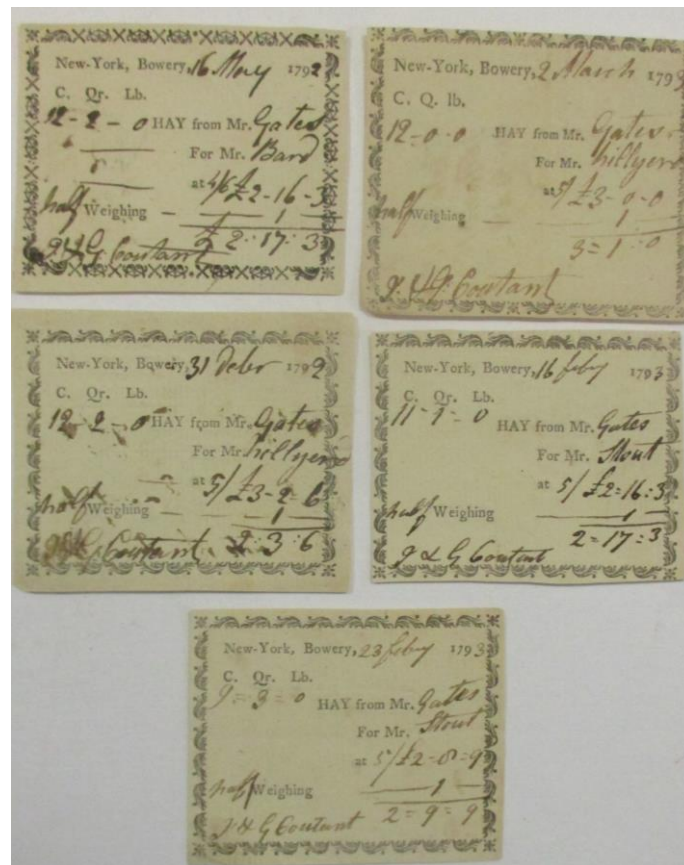 New-York, Bowery, 16 May 1792
C. Qr. Lb.
12-2-0 HAY from Mr. Gates
For Mr. Bard
at 4/6 £2-16-3
half Weighing — 1
£ 2:17:3
J & G Coutant
New-York, Bowery, 2 March 1793
C. Q. lb.
12-0-0 HAY from Mr. Gates
For Mr. hillyerd
at 5/ £3-0-0
half Weighing — 1
3=1:0
J & G Coutant
New-York, Bowery, 31 Debr 1792
C. Qr. Lb.
12-2-0 HAY from Mr. Gates
For Mr. hillyerd
at 5/ £3-2=6
half Weighing — 1
:3:6
J & G Coutant
New-York, Bowery, 16 feby 1793
C. Qr. Lb.
11-1=0 HAY from Mr. Gates
For Mr. Stout
at 5/ £2=16=3
half Weighing — 1
2=17=3
J & G Coutant
New-York, Bowery, 23 feby 1793
C. Qr. Lb.
9=3=0 HAY from Mr. Gates
For Mr. Stout
at 5/ £2=8=9
half Weighing — 1
2=9=9
J & G Coutant